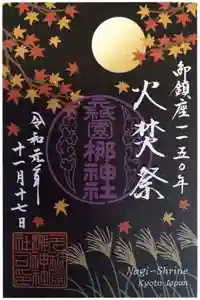 御鎮座一一五〇年
火焚祭
元祇園梛神社
令和元年
十一月十七日
Nagi-Shrine
Kyoto Japan